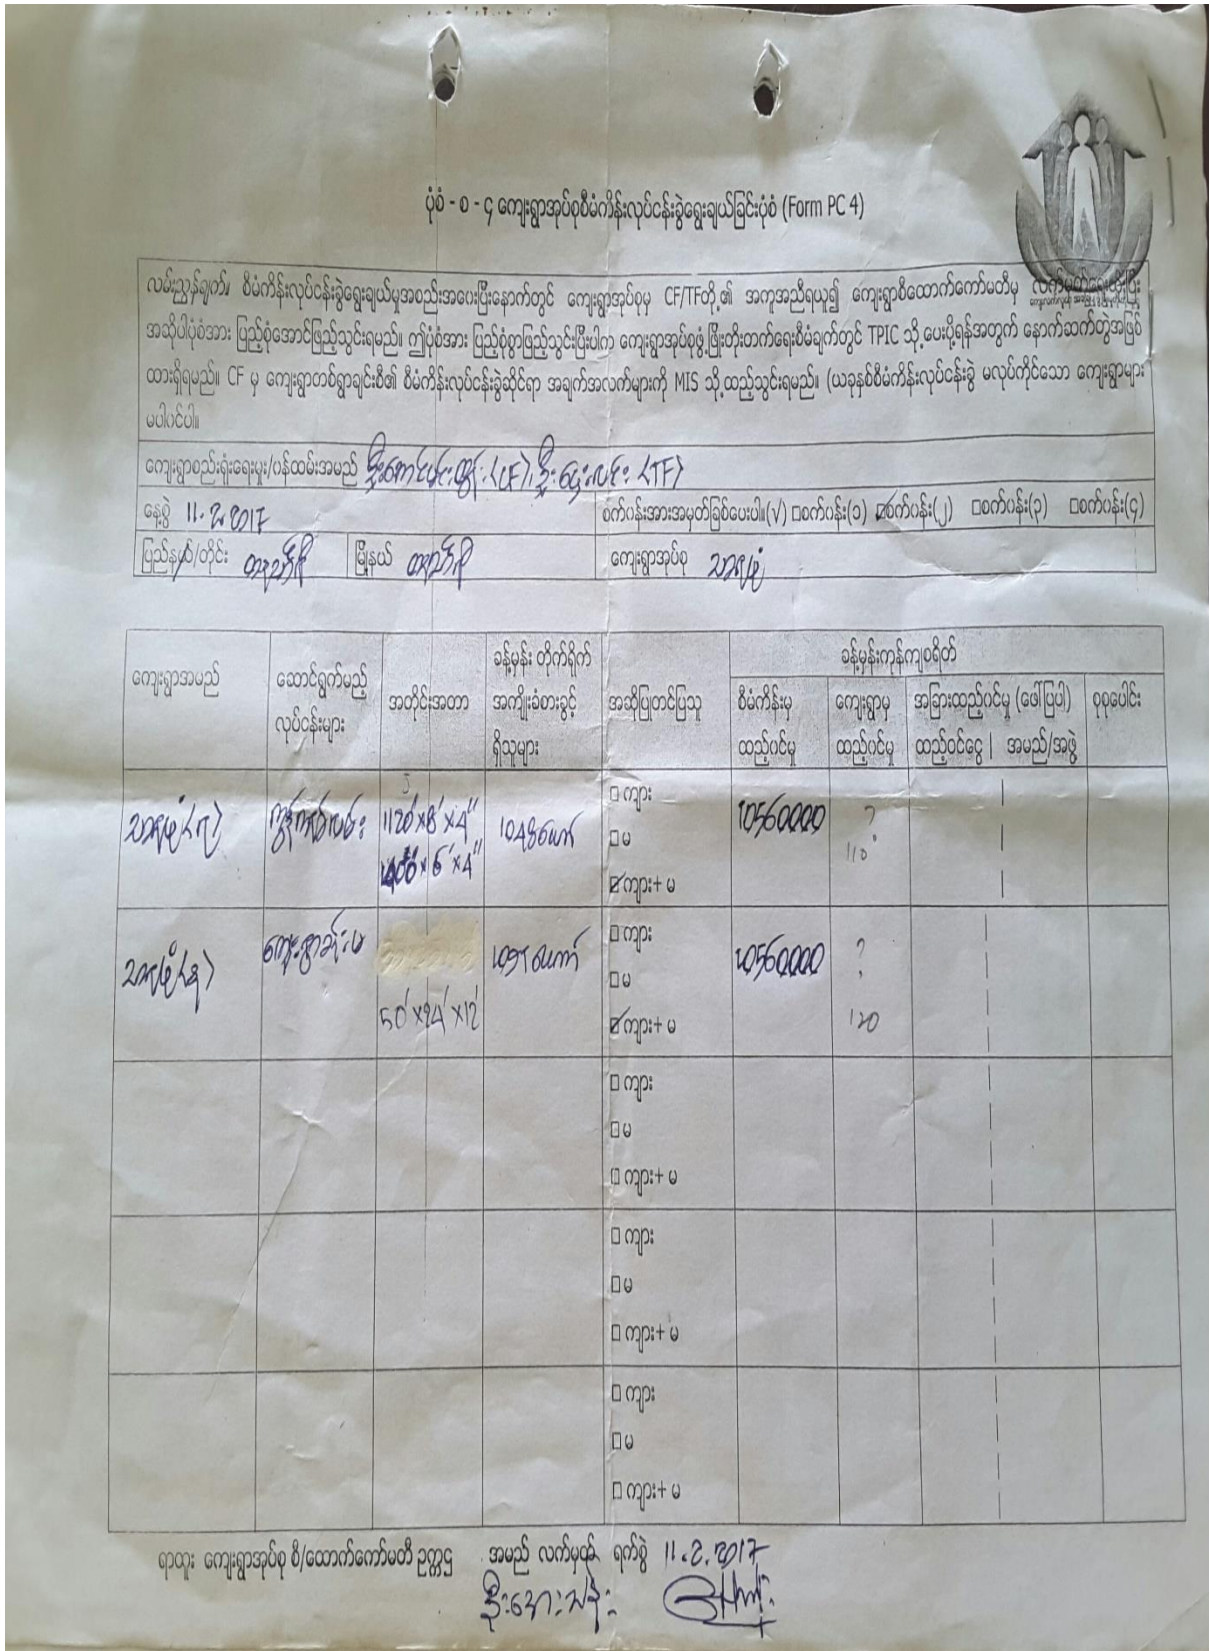 ပုံစံ - စ - ၄ ကျေးရွာအုပ်စုစီမံကိန်းလုပ်ငန်းခွဲရွေးချယ်ခြင်းပုံစံ (Form PC 4)
လမ်းညွှန်ချက်။ စီမံကိန်းလုပ်ငန်းခွဲရွေးချယ်မှုအစည်းအဝေးပြီးနောက်တွင် ကျေးရွာအုပ်စုမှ CF/TFတို့၏ အကူအညီရယူ၍ ကျေးရွာစီထောက်ကော်မတီမှ
အဆိုပါပုံစံအား ပြည့်စုံအောင်ဖြည့်သွင်းရမည်။ ဤပုံစံအား ပြည့်စုံစွာဖြည့်သွင်းပြီးပါက ကျေးရွာအုပ်စုဖွံ့ဖြိုးတိုးတက်ရေးစီမံချက်တွင် TPIC သို့ပေးပို့ရန်အတွက် နောက်ဆက်တွဲအဖြစ်
ထားရှိရမည်။ CF မှ ကျေးရွာတစ်ရွာချင်းစီ၏ စီမံကိန်းလုပ်ငန်းခွဲဆိုင်ရာ အချက်အလက်များကို MIS သို့ထည့်သွင်းရမည်။ (ယခုနှစ်စီမံကိန်းလုပ်ငန်းခွဲ မလုပ်ကိုင်သော ကျေးရွာများ
မပါဝင်ပါ။
ကျေးရွာစည်းရုံးရေးမှူး/ဝန်ထမ်းအမည် <CF>၊ <TF>
နေ့စွဲ 11.2.2017 စက်ဝန်းအားအမှတ်ခြစ်ပေးပါ။(√) □စက်ဝန်း(၁) ☑စက်ဝန်း(၂) □စက်ဝန်း(၃) □စက်ဝန်း(၄)
ပြည်နယ်/တိုင်း မြို့နယ် ကျေးရွာအုပ်စု
ကျေးရွာအမည် ဆောင်ရွက်မည့် လုပ်ငန်းများ အတိုင်းအတာ ခန့်မှန်း တိုက်ရိုက် အကျိုးခံစားခွင့် ရှိသူများ အဆိုပြုတင်ပြသူ ခန့်မှန်းကုန်ကျစရိတ်
စီမံကိန်းမှ ထည့်ဝင်မှု ကျေးရွာမှ ထည့်ဝင်မှု အခြားထည့်ဝင်မှု (ဖေါ်ပြပါ) ထည့်ဝင်ငွေ | အမည်/အဖွဲ့ စုစုပေါင်း
ကွန်ကရစ်လမ်း 1120'×8'×4" 1048ယောက် □ ကျား 10560000 ?
□ မ 110
×6'×4" ☑ ကျား+ မ
□ ကျား 10560000 ?
□ မ
50'×24'×12' ☑ ကျား+ မ 120
□ ကျား
□ မ
□ ကျား+ မ
□ ကျား
□ မ
□ ကျား+ မ
□ ကျား
□ မ
□ ကျား+ မ
ရာထူး ကျေးရွာအုပ်စု စီ/ထောက်ကော်မတီ ဥက္ကဌ အမည် လက်မှတ် ရက်စွဲ 11.2.2017